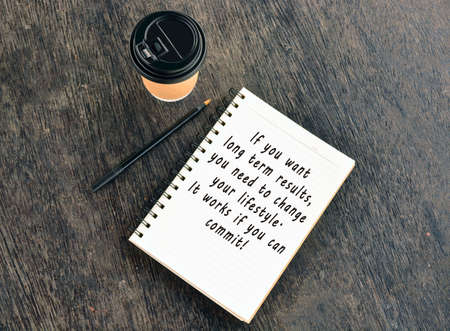 If you want
long term results,
you need to change
your lifestyle.
It works if you can
commit!